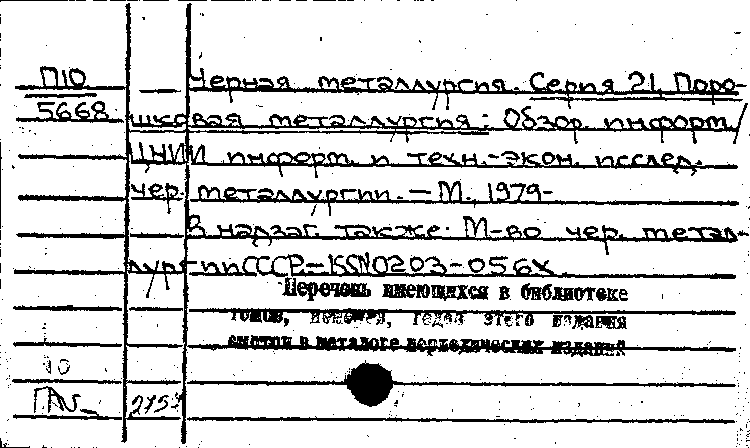 П10
5668
Черная металлургия. Серия 21, Поро-
шковая металлургия: Обзор. информ. /
ЦНИИ информ. и техн.-экон. исслед.
чер. металлургии. — М., 1979-
В надзаг. также: М-во чер. метал-
лургии СССР. — ISSN 0203-056X
Перечень имеющихся в библиотеке
томов, номеров, годов этого издания
смотри в каталоге периодических изданий
10